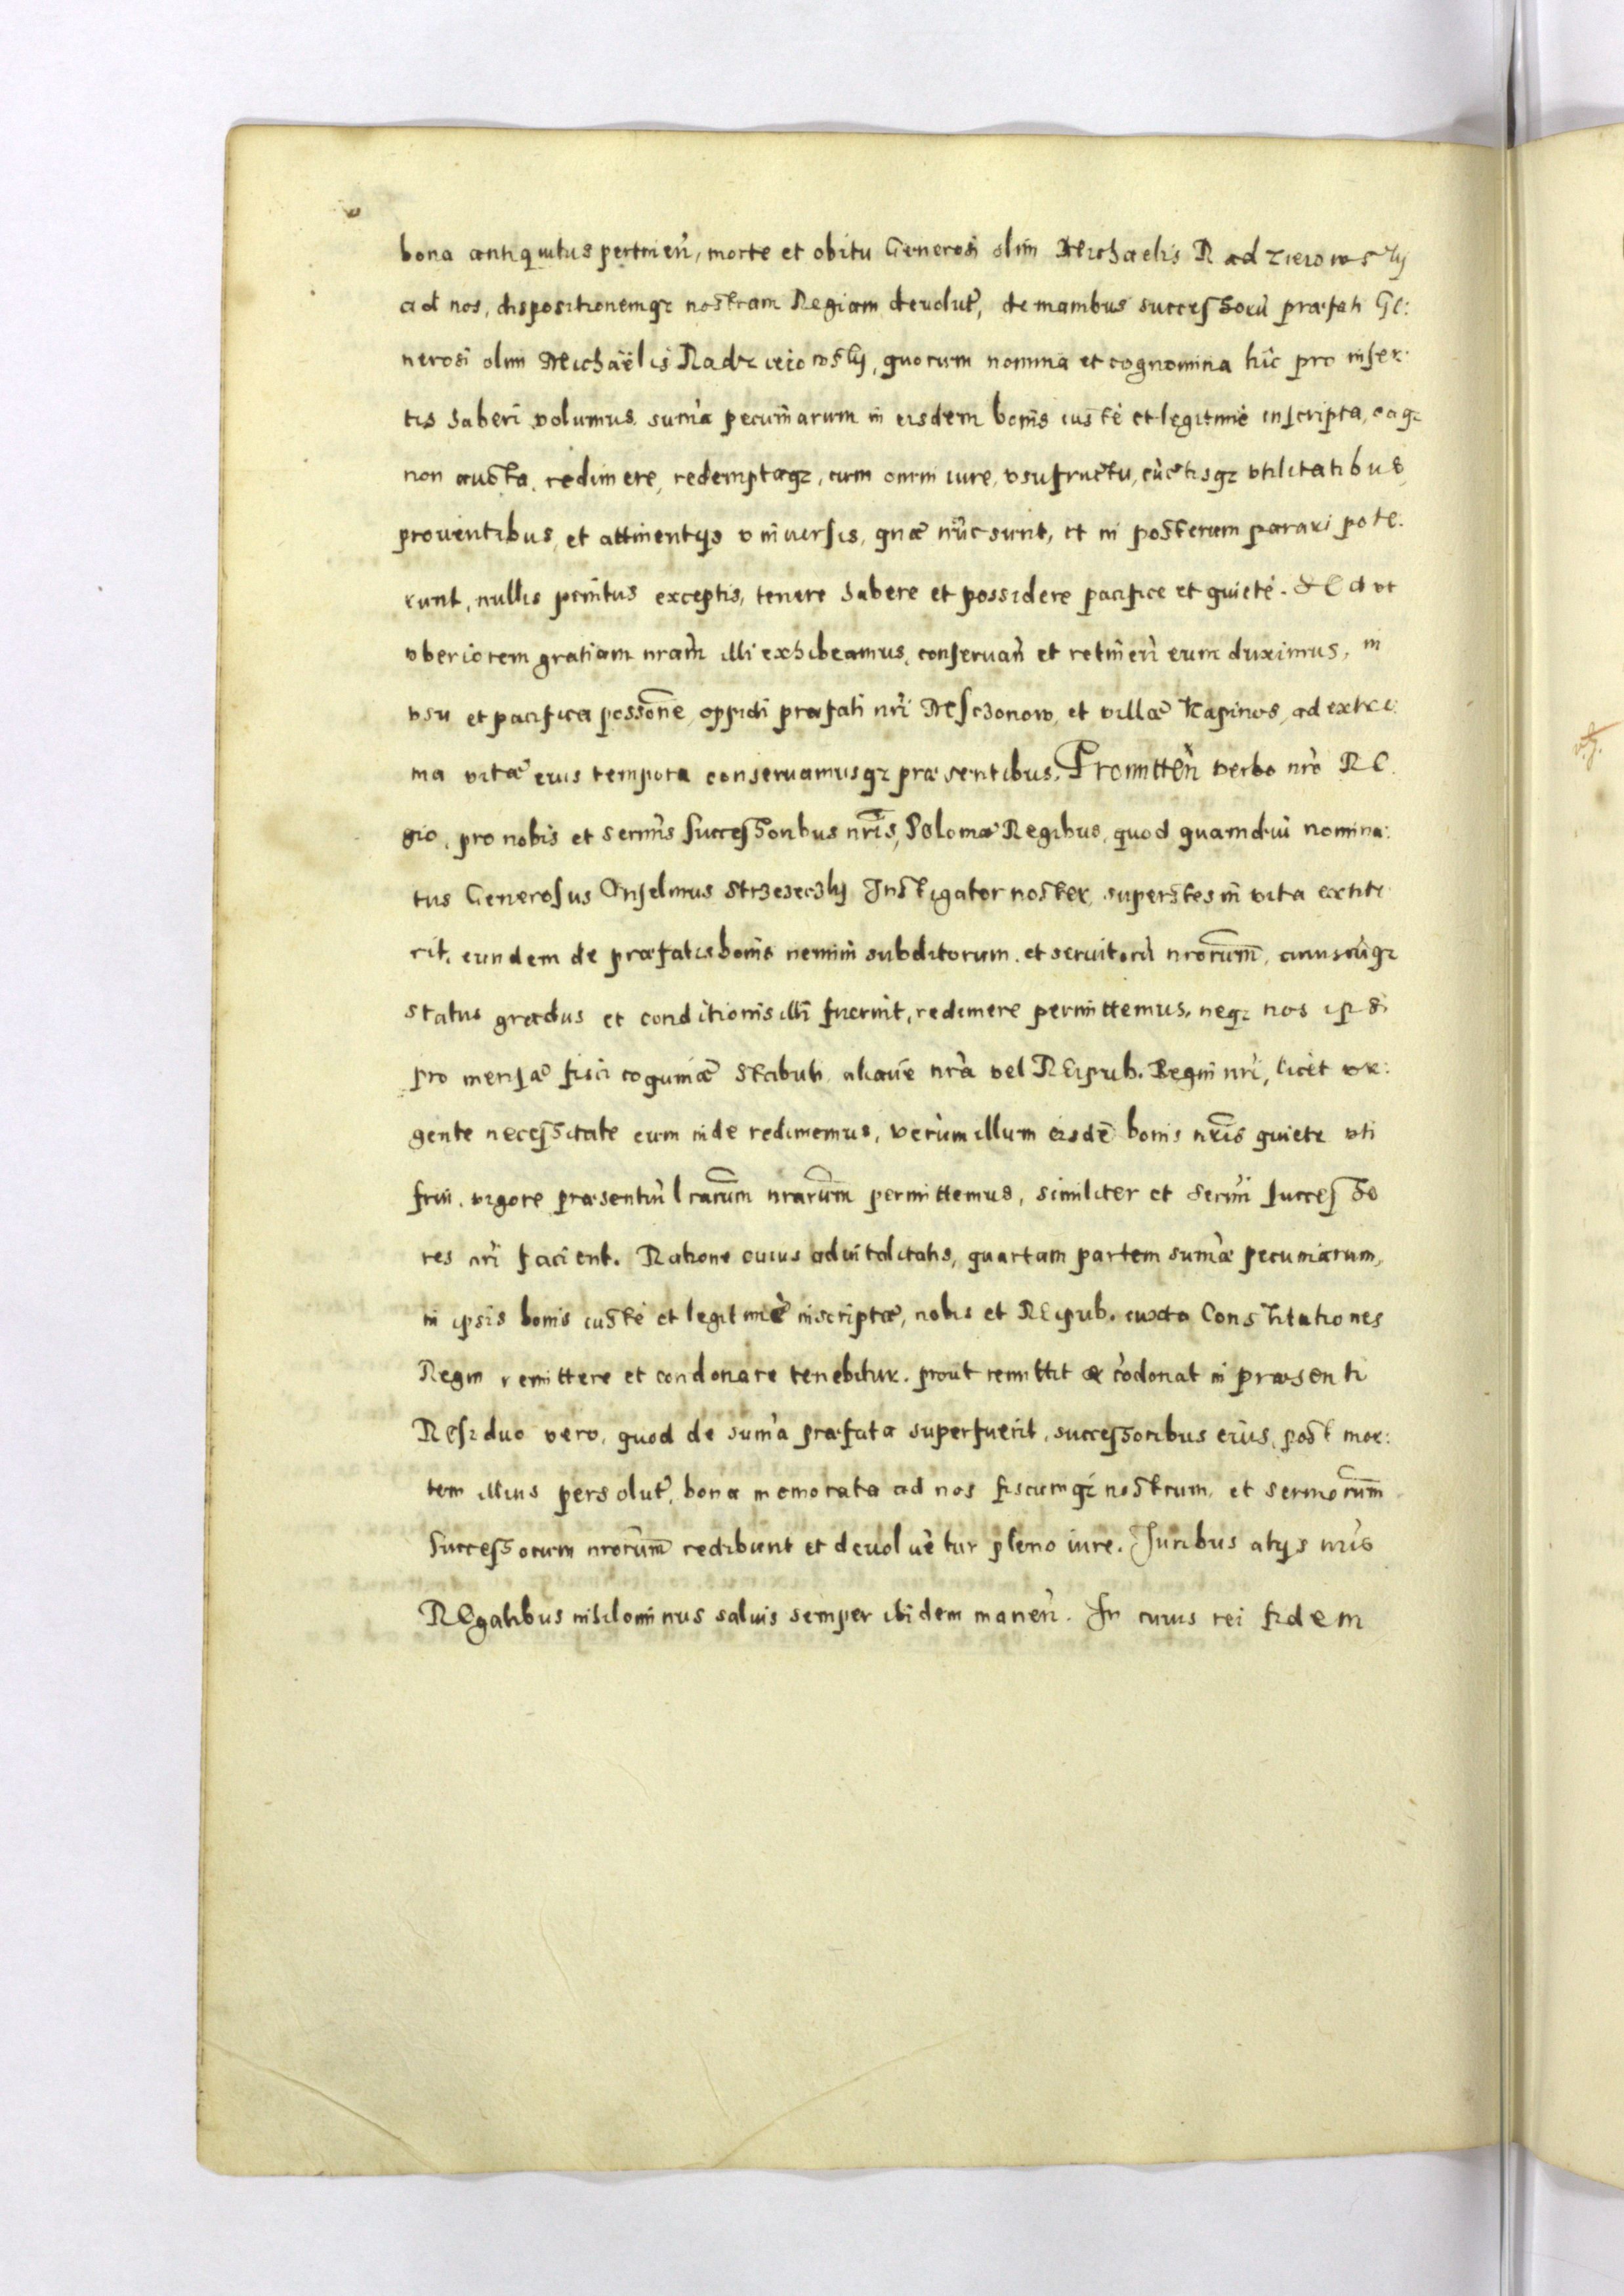 bona antiquitus pertineñ, morte et obitu Generosi olim Michaelis Radzieiowsky
ad nos, dispositionemqз nostram Regiam deuolut̃, de manibus successorũ præfati Ge:
nerosi olim Michaëlis Radzieiowsky, quorum nomina et cognomina hic pro inser:
tis haberi volumus, sum̃a pecuniarum in eisdem bonis iustè et legitimè inscripta, eaqз
non aucta, redimere, redemptaqз, cum omni iure, vsufructu, cũctisqз vtilitatibus,
prouentibus, et attinentijs vniuersis, quæ nũc sunt, et in posterum parari pote:
runt, nullis penitus exceptis, tenere habere et possidere pacifice et quietè. Et vt
vberiorem gratiam nram̃ illi exhibeamus, conseruañ et retineñ eum duximus, in
vsu et pacifica possõne, oppidi præfati nri̇̃ Msczonow, et villæ Kapinos, ad extre:
ma vitæ eius tempora conseruamusqз præsentibus. Promitteñ verbo nrõ Re:
gio, pro nobis et sermis̃ successoribus nris̃, Poloniæ Regibus, quod quamdiu nomina:
tus Generosus Anselmus Strzezeczky Instigator noster, superstes in vita extite
rit, eundem de præfatis bonis nemini subditorum, et seruitorũ nrorum̃, cuiuscũqз
status gradus et conditionis illi fuerint, redimere permittemus, neqз nos ipsi
pro mensæ fisci coquinæ stabuli, aliaue nrã vel Reipub. Regni nri̇̃, licet vr:
gente necessitate eum inde redimemus, verùm illum eisdẽ bonis nris̃ quiete vti
frui, vigore præsentiũ lrarum̃ nrarum̃ permittemus, similiter et sermi̇̃ successo
res nri̇̃ facient. Ratione cuius aduitalitatis, quartam partem sum̃æ pecuniarum,
in ipsis bonis iustè et legitimè inscriptæ, nobis et Reipub. iuxta Constitutiones
Regni remittere et condonare tenebitur. prout remittit & cõdonat in præsenti
Residuo vero, quod de sum̃a præfata superfuerit, successoribus eius, post mor:
tem illius persolut̃, bona memorata ad nos fiscumqз nostrum, et sermorum̃
successorum nrorum̃ redibunt et deuoluẽtur pleno iure. Iuribus alijs nris̃
Regalibus nihilominus saluis semper ibidem maneñ. In cuius rei fidem